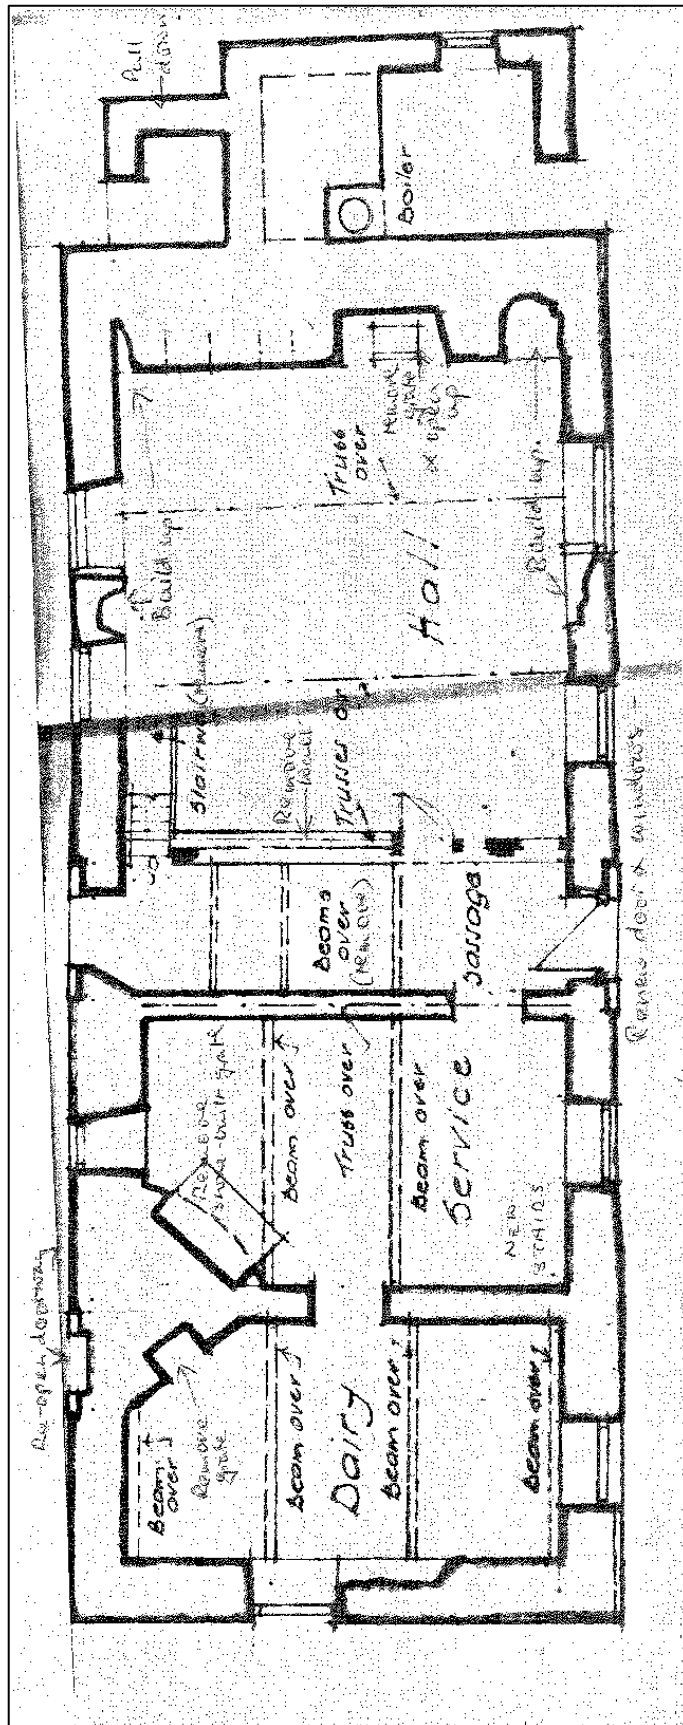 Pull
down
Boiler
Truss
over
remove
grate
& open
up
Build up
Hall
Rebuild up.
Stairway (Remove)
Remove
wall
Trusses over
up
Beams
over
(remove)
Passage
Renew door & windows -
Remove
stone-built grate
Beam over
Truss over
Beam over
Service
NEW
STAIRS
Re-open doorway
Beam
over
Remove
grate
Beam over
Dairy
Beam over
Beam over